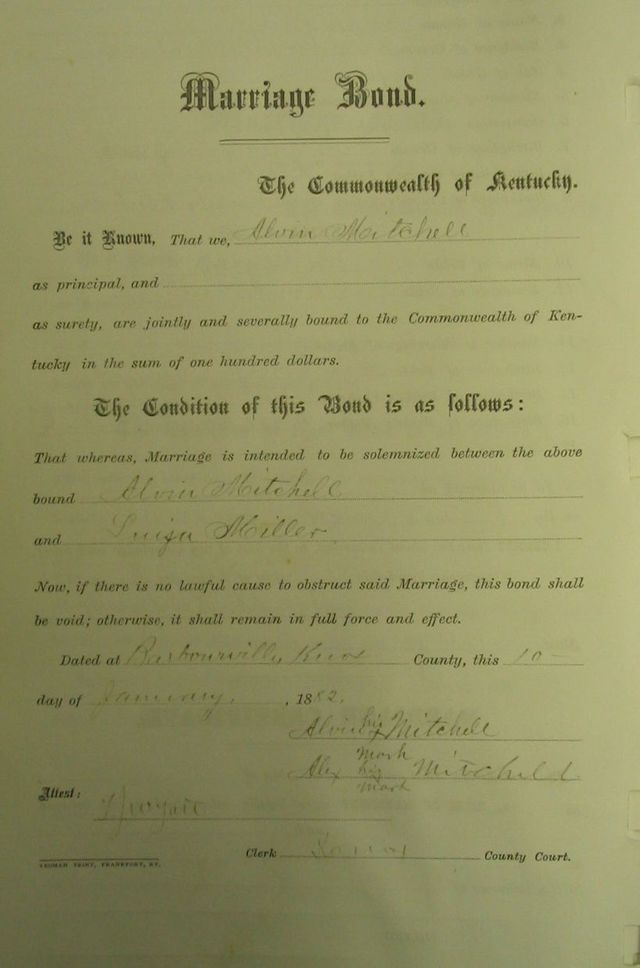 Marriage Bond.
The Commonwealth of Kentucky.
Be it Known, That we, Alvin Mitchell
as principal, and
as surety, are jointly and severally bound to the Commonwealth of Ken-
tucky in the sum of one hundred dollars.
The Condition of this Bond is as follows:
That whereas, Marriage is intended to be solemnized between the above
bound Alvin Mitchell
and Luiza Miller
Now, if there is no lawful cause to obstruct said Marriage, this bond shall
be void; otherwise, it shall remain in full force and effect.
Dated at Barbourville Knox County, this 10
day of January, 1882.
Alvin his Mitchell
mark
Alex his Mitchell
mark
Attest:
Clerk County Court.
YEOMAN PRINT, FRANKFORT, KY.